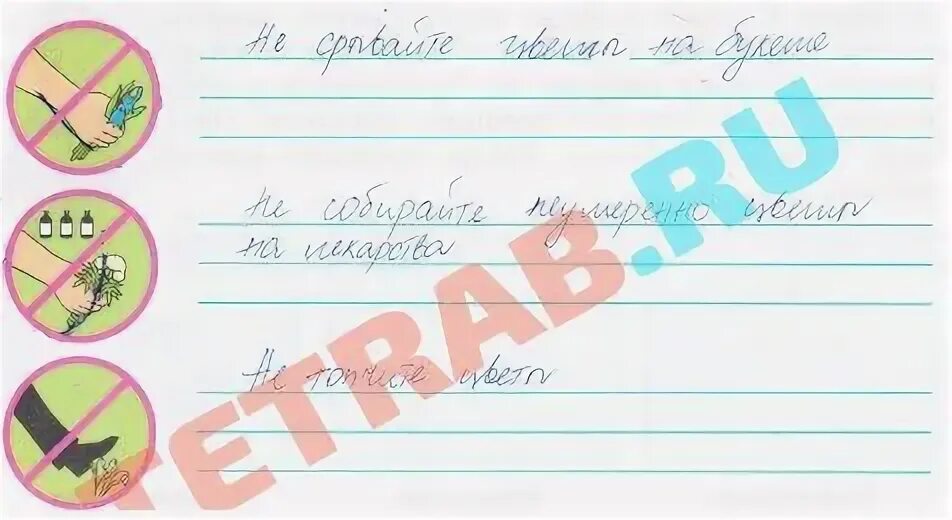 Не срывайте цветы на букеты
Не собирайте неумеренно цветы
на лекарства
Не топчите цветы
TETRAB.RU